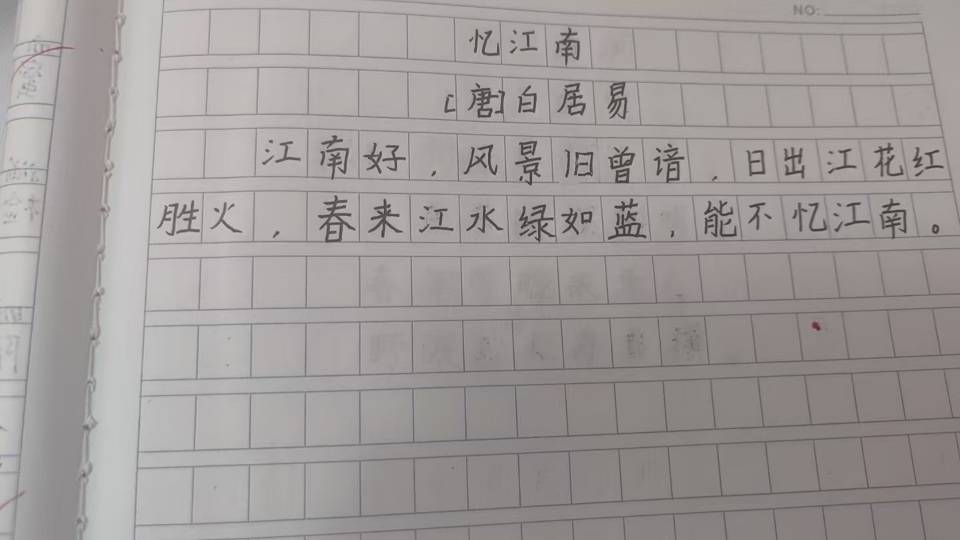 NO:
忆江南
[唐]白居易
江南好,风景旧曾谙,日出江花红
胜火,春来江水绿如蓝,能不忆江南。